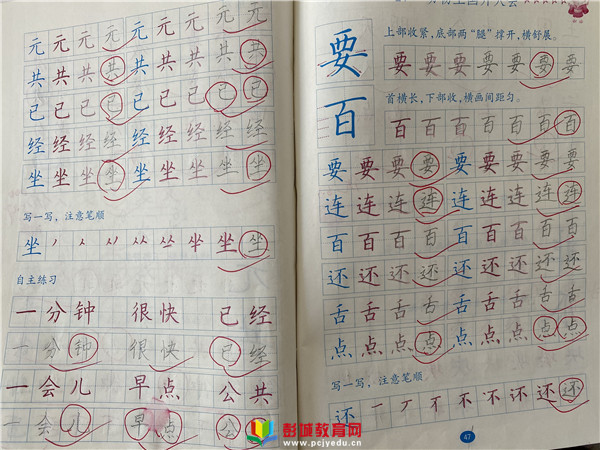 元元元元元元元元元
共共共共共共共共共
已已已已已已已已已
经经经经经经经经经
坐坐坐坐坐坐坐坐坐
写一写，注意笔顺
坐 坐 坐
自主练习
一分钟 很快 已经
一分钟 很快 已经
一会儿 早点 公共
一会儿 早点 公共
要
上部收紧，底部两“腿”撑开，横舒展。
要要要要要要要
百
首横长，下部收，横画间距匀。
百百百百百百百
要要要要要要要要要
连连连连连连连连连
百百百百百百百百百
还还还还还还还还还
舌舌舌舌舌舌舌舌舌
点点点点点点点点点
写一写，注意笔顺
还 一 丆 不 不 还 还
47
彭城教育网
www.pcjyedu.cn